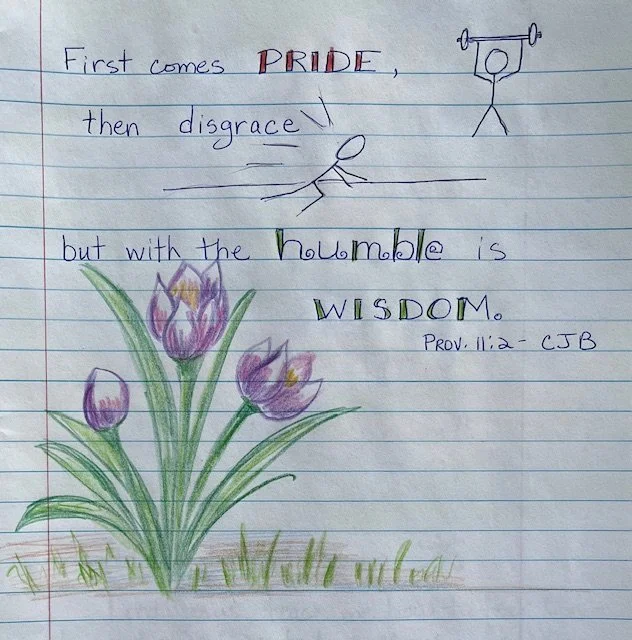 First comes PRIDE,
then disgrace
but with the humble is
WISDOM.
PROV. 11:2 - CJB